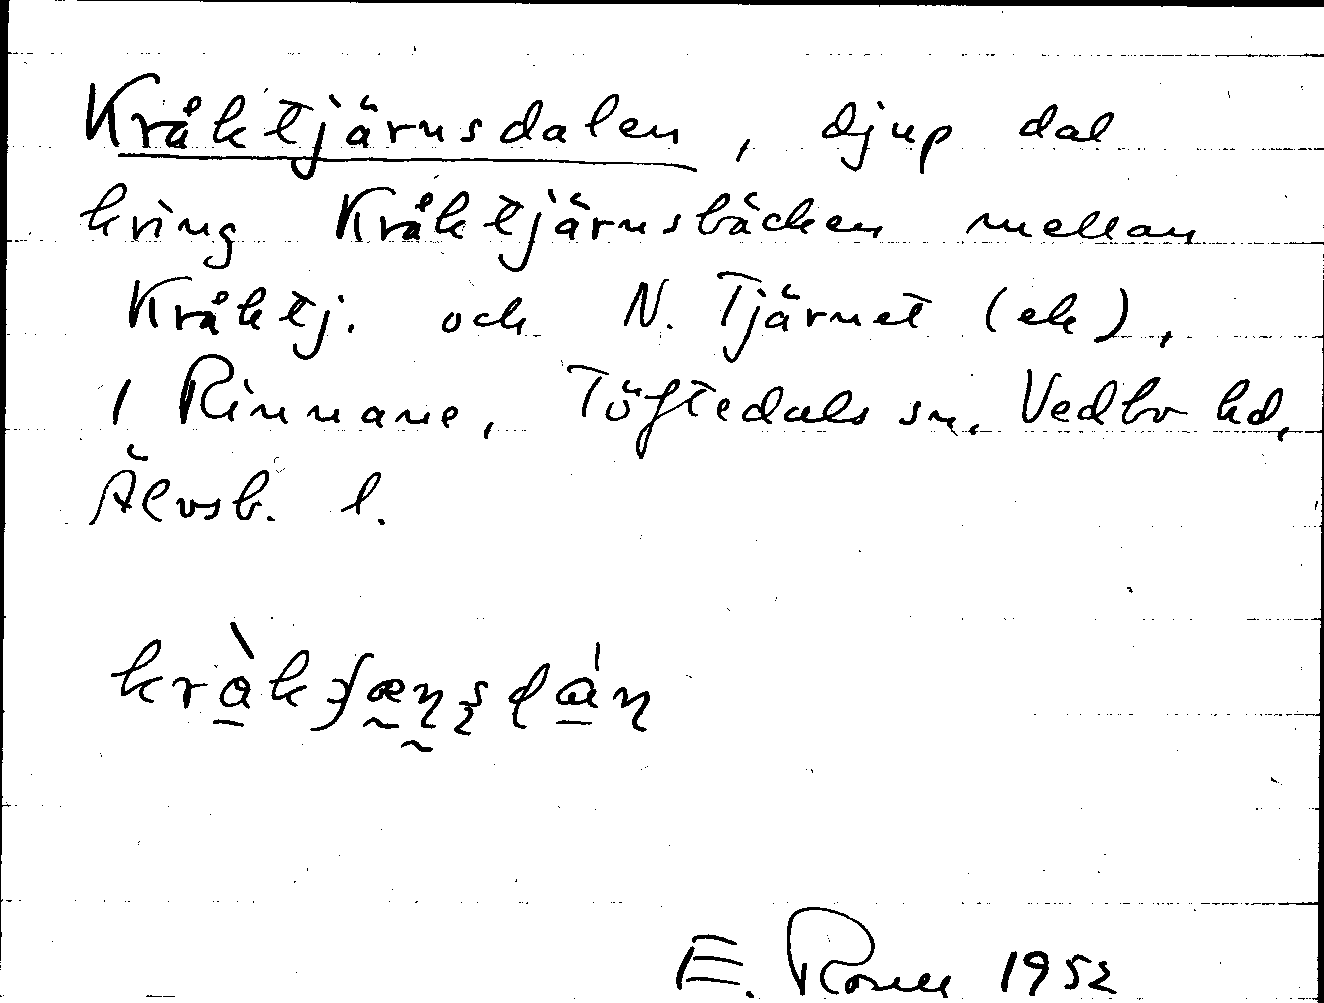 Kråktjärnsdalen, djup dal
kring Kråktjärnsbäcken mellan
Kråktj. och N. Tjärnet (ek),
i Rinnane, Töftedals sn, Vedbo hd,
Älvsb. l.
E. 1952